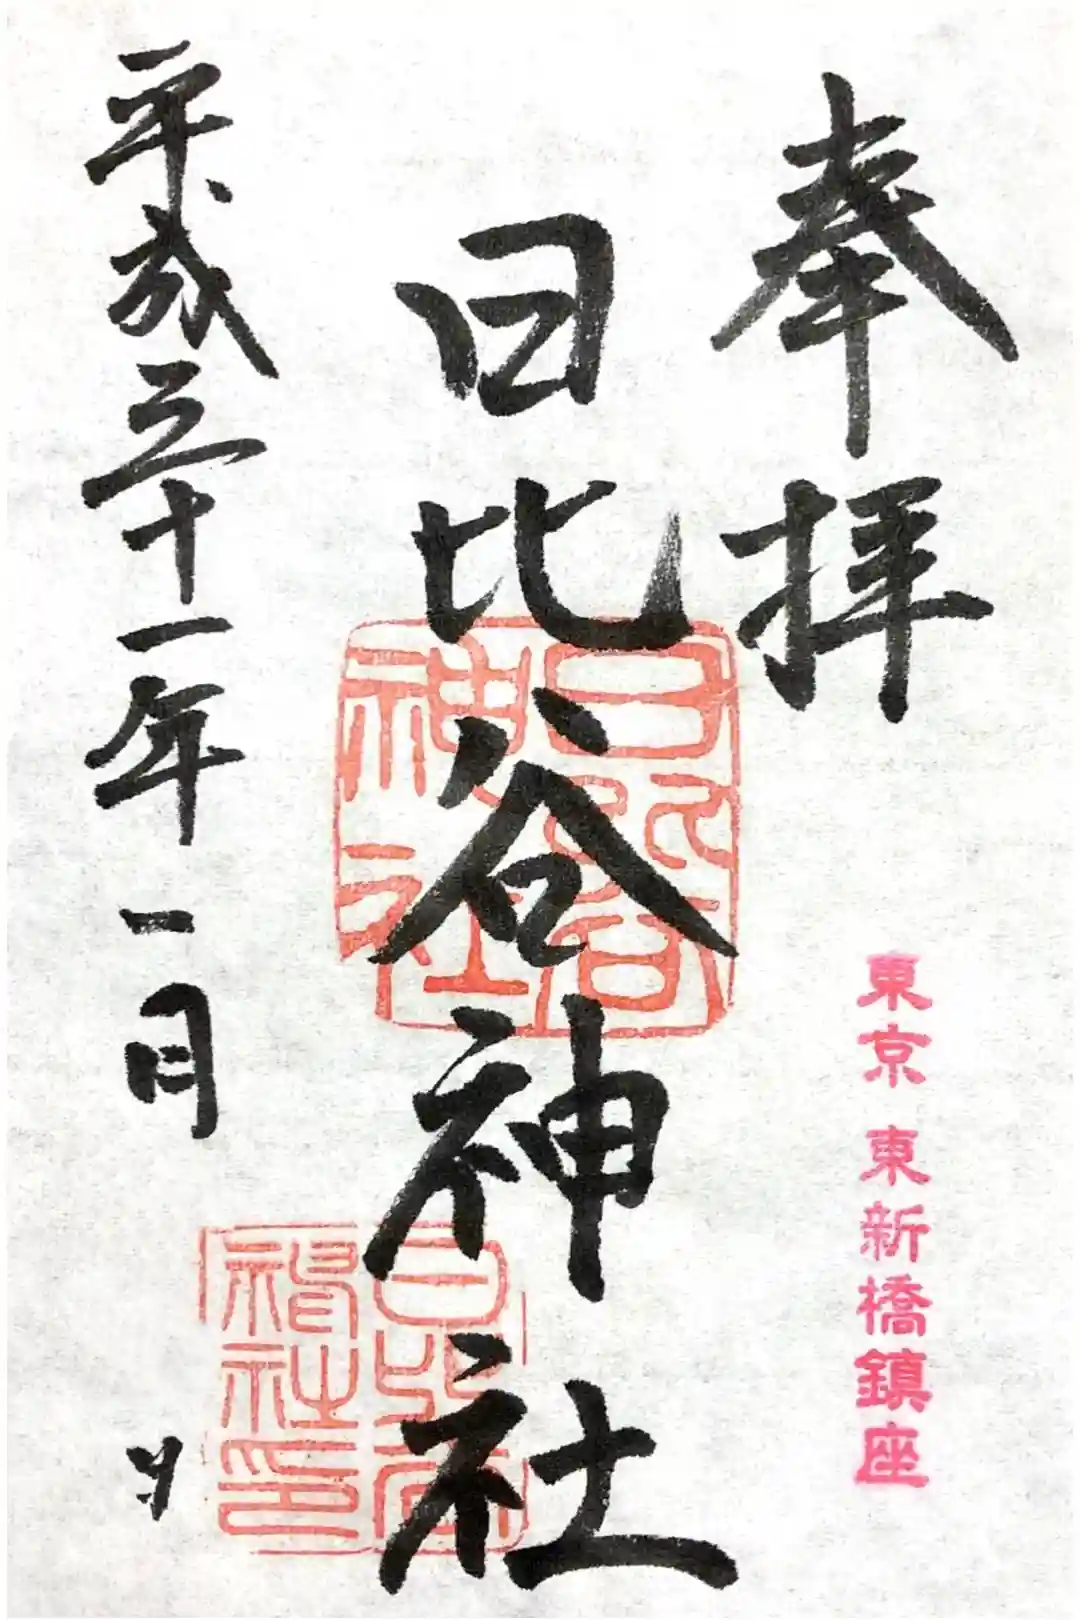 奉拝
東京 東新橋鎮座
日比谷神社
日比谷神社
日比谷神社印
平成三十一年一月 日